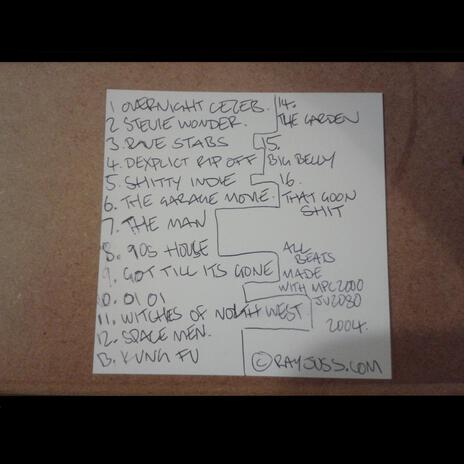 1 OVERNIGHT CELEB.
2 STEVIE WONDER.
3. RAVE STABS
4. DEXPLICT RIP OFF
5. SHITTY INDIE
6. THE GARAGE MOVIE.
7. THE MAN
8. 90S HOUSE
9. GOT TILL ITS GONE
10. OI OI
11. WITCHES OF NORTH WEST
12. SPACE MEN.
13. KUNG FU
14.
THE GARDEN
15.
BIG BELLY
16.
THAT GOON
SHIT
ALL
BEATS
MADE
WITH MPC2000
JV2080
2004.
© RAYJUSS.COM